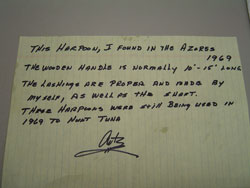 THIS HARPOON, I FOUND IN THE AZORES
1969
THE WOODEN HANDLE IS NORMALLY 10'-15' LONG
THE LASHINGS ARE PROPER AND MADE BY
MYSELF, AS WELL AS THE SHAFT.
THESE HARPOONS WERE STILL BEING USED IN
1969 TO HUNT TUNA